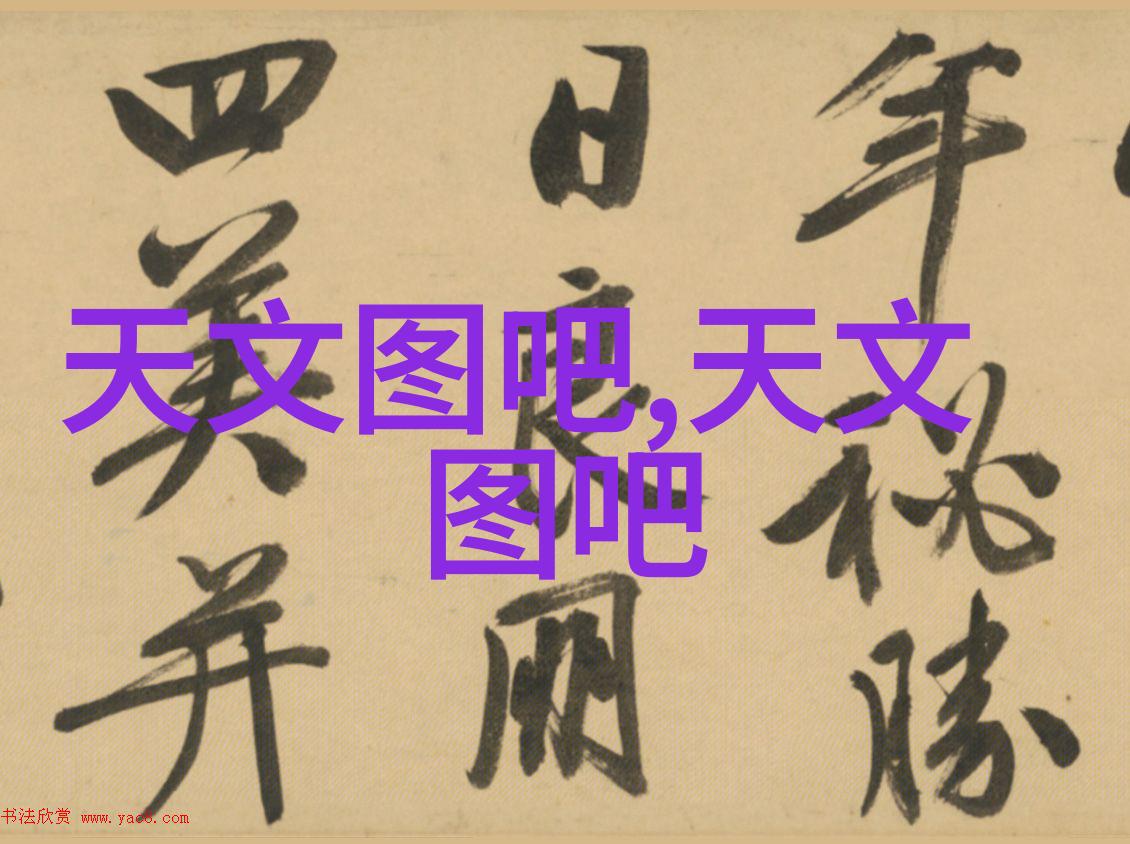 年秘勝
日良朋
四美并
天文图吧,天文
图吧
书法欣赏 www.yac8.com